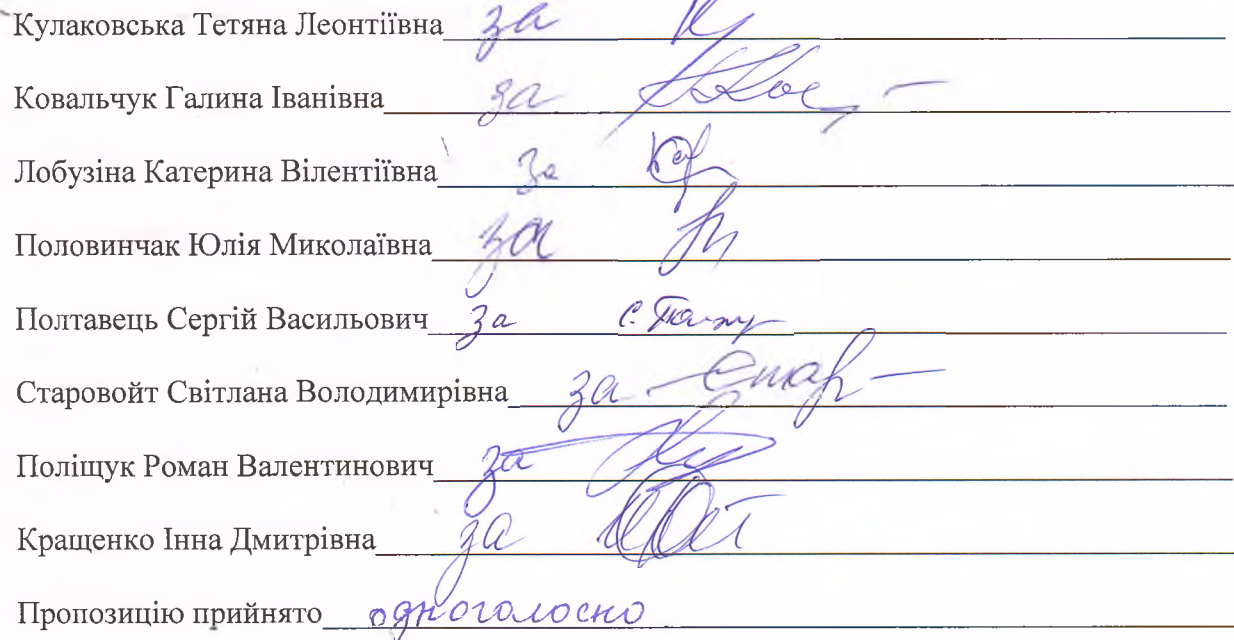 Кулаковська Тетяна Леонтіївна за
Ковальчук Галина Іванівна за
Лобузіна Катерина Вілентіївна за
Половинчак Юлія Миколаївна за
Полтавець Сергій Васильович за
Старовойт Світлана Володимирівна за
Поліщук Роман Валентинович за
Кращенко Інна Дмитрівна за
Пропозицію прийнято одноголосно